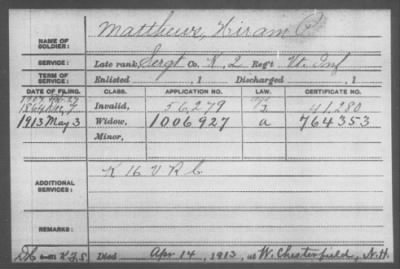 NAME OF SOLDIER: Matthews, Hiram P.
SERVICE: Late rank, Sergt Co. K, 2 Reg't Vt. Inf
TERM OF SERVICE: Enlisted , 1 Discharged , 1
DATE OF FILING. CLASS. APPLICATION NO. LAW. CERTIFICATE NO.
1864 Invalid, 56,279 41,280
1913 May 3 Widow, 1006927 a 764353
Minor,
ADDITIONAL SERVICES: K 16 V R C
REMARKS:
Died Apr 14, 1913, at W. Chesterfield, N.H.